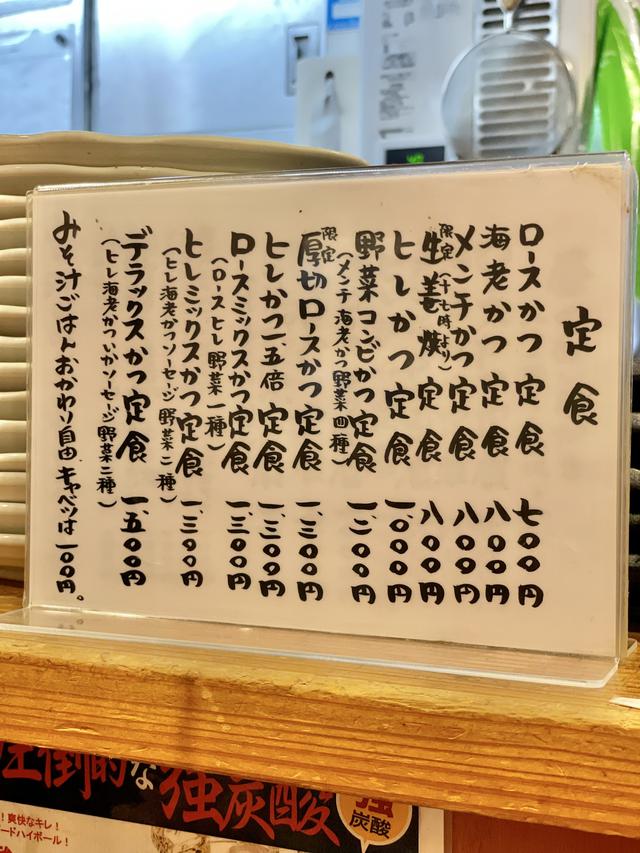 定食
ロースかつ定食 七〇〇円
海老かつ定食 八〇〇円
メンチかつ定食 八〇〇円
限定(十七時より)
生姜焼定食 八〇〇円
ヒレかつ定食 一、〇〇〇円
野菜コンビかつ定食 一、二〇〇円
(メンチ海老かつ野菜四種)
限定
厚切ロースかつ定食 一、三〇〇円
ヒレかつ一、五倍定食 一、三〇〇円
ロースミックスかつ定食 一、三〇〇円
(ロースヒレ野菜一種)
ヒレミックスかつ定食 一、三〇〇円
(ヒレ海老かつソーセージ野菜二種)
デラックスかつ定食 一、五〇〇円
(ヒレ海老かついかソーセージ野菜二種)
みそ汁ごはんおかわり自由、キャベツは一〇〇円。
圧倒的な独炭酸
強
炭酸
！爽快なキレ！
ードハイボール！